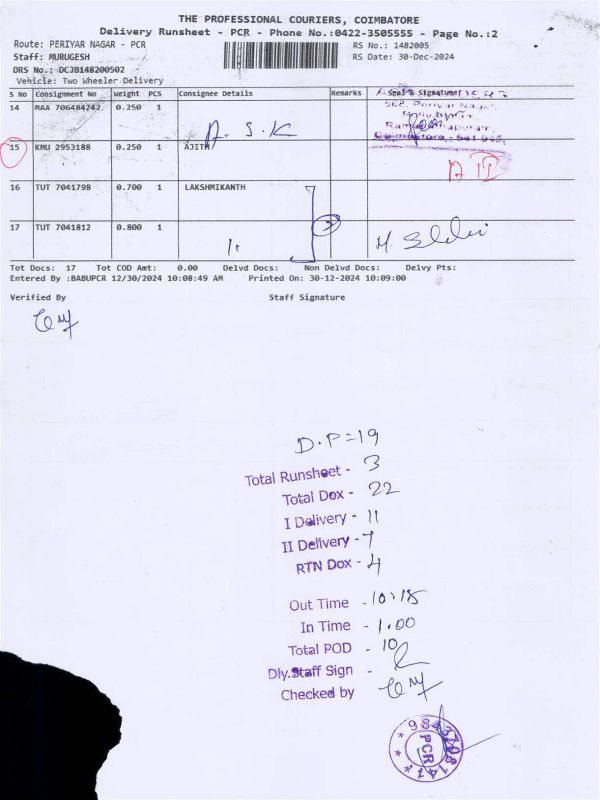 THE PROFESSIONAL COURIERS, COIMBATORE
Delivery Runsheet - PCR - Phone No.:0422-3505555 - Page No.:2
Route: PERIYAR NAGAR - PCR
RS No.: 1482005
Staff: MURUGESH
RS Date: 30-Dec-2024
DRS No.: DCJB148200502
Vehicle: Two Wheeler Delivery
S No Consignment No Weight PCS Consignee Details Remarks Seal & Signature
14 MAA 706484242 0.250 1
A. S. K
15 KMU 2953188 0.250 1 AJITH
16 TUT 7041798 0.700 1 LAKSHMIKANTH
17 TUT 7041812 0.800 1
Tot Docs: 17 Tot COD Amt: 0.00 Delvd Docs: Non Delvd Docs: Delvy Pts:
Entered By :BABUPCR 12/30/2024 10:08:49 AM Printed On: 30-12-2024 10:09:00
Verified By Staff Signature
D.P=19
Total Runsheet - 3
Total Dox - 22
I Delivery - 11
II Delivery - 7
RTN Dox - 4
Out Time - 10:15
In Time - 1.00
Total POD - 10
Dly.Staff Sign -
Checked by
PCR